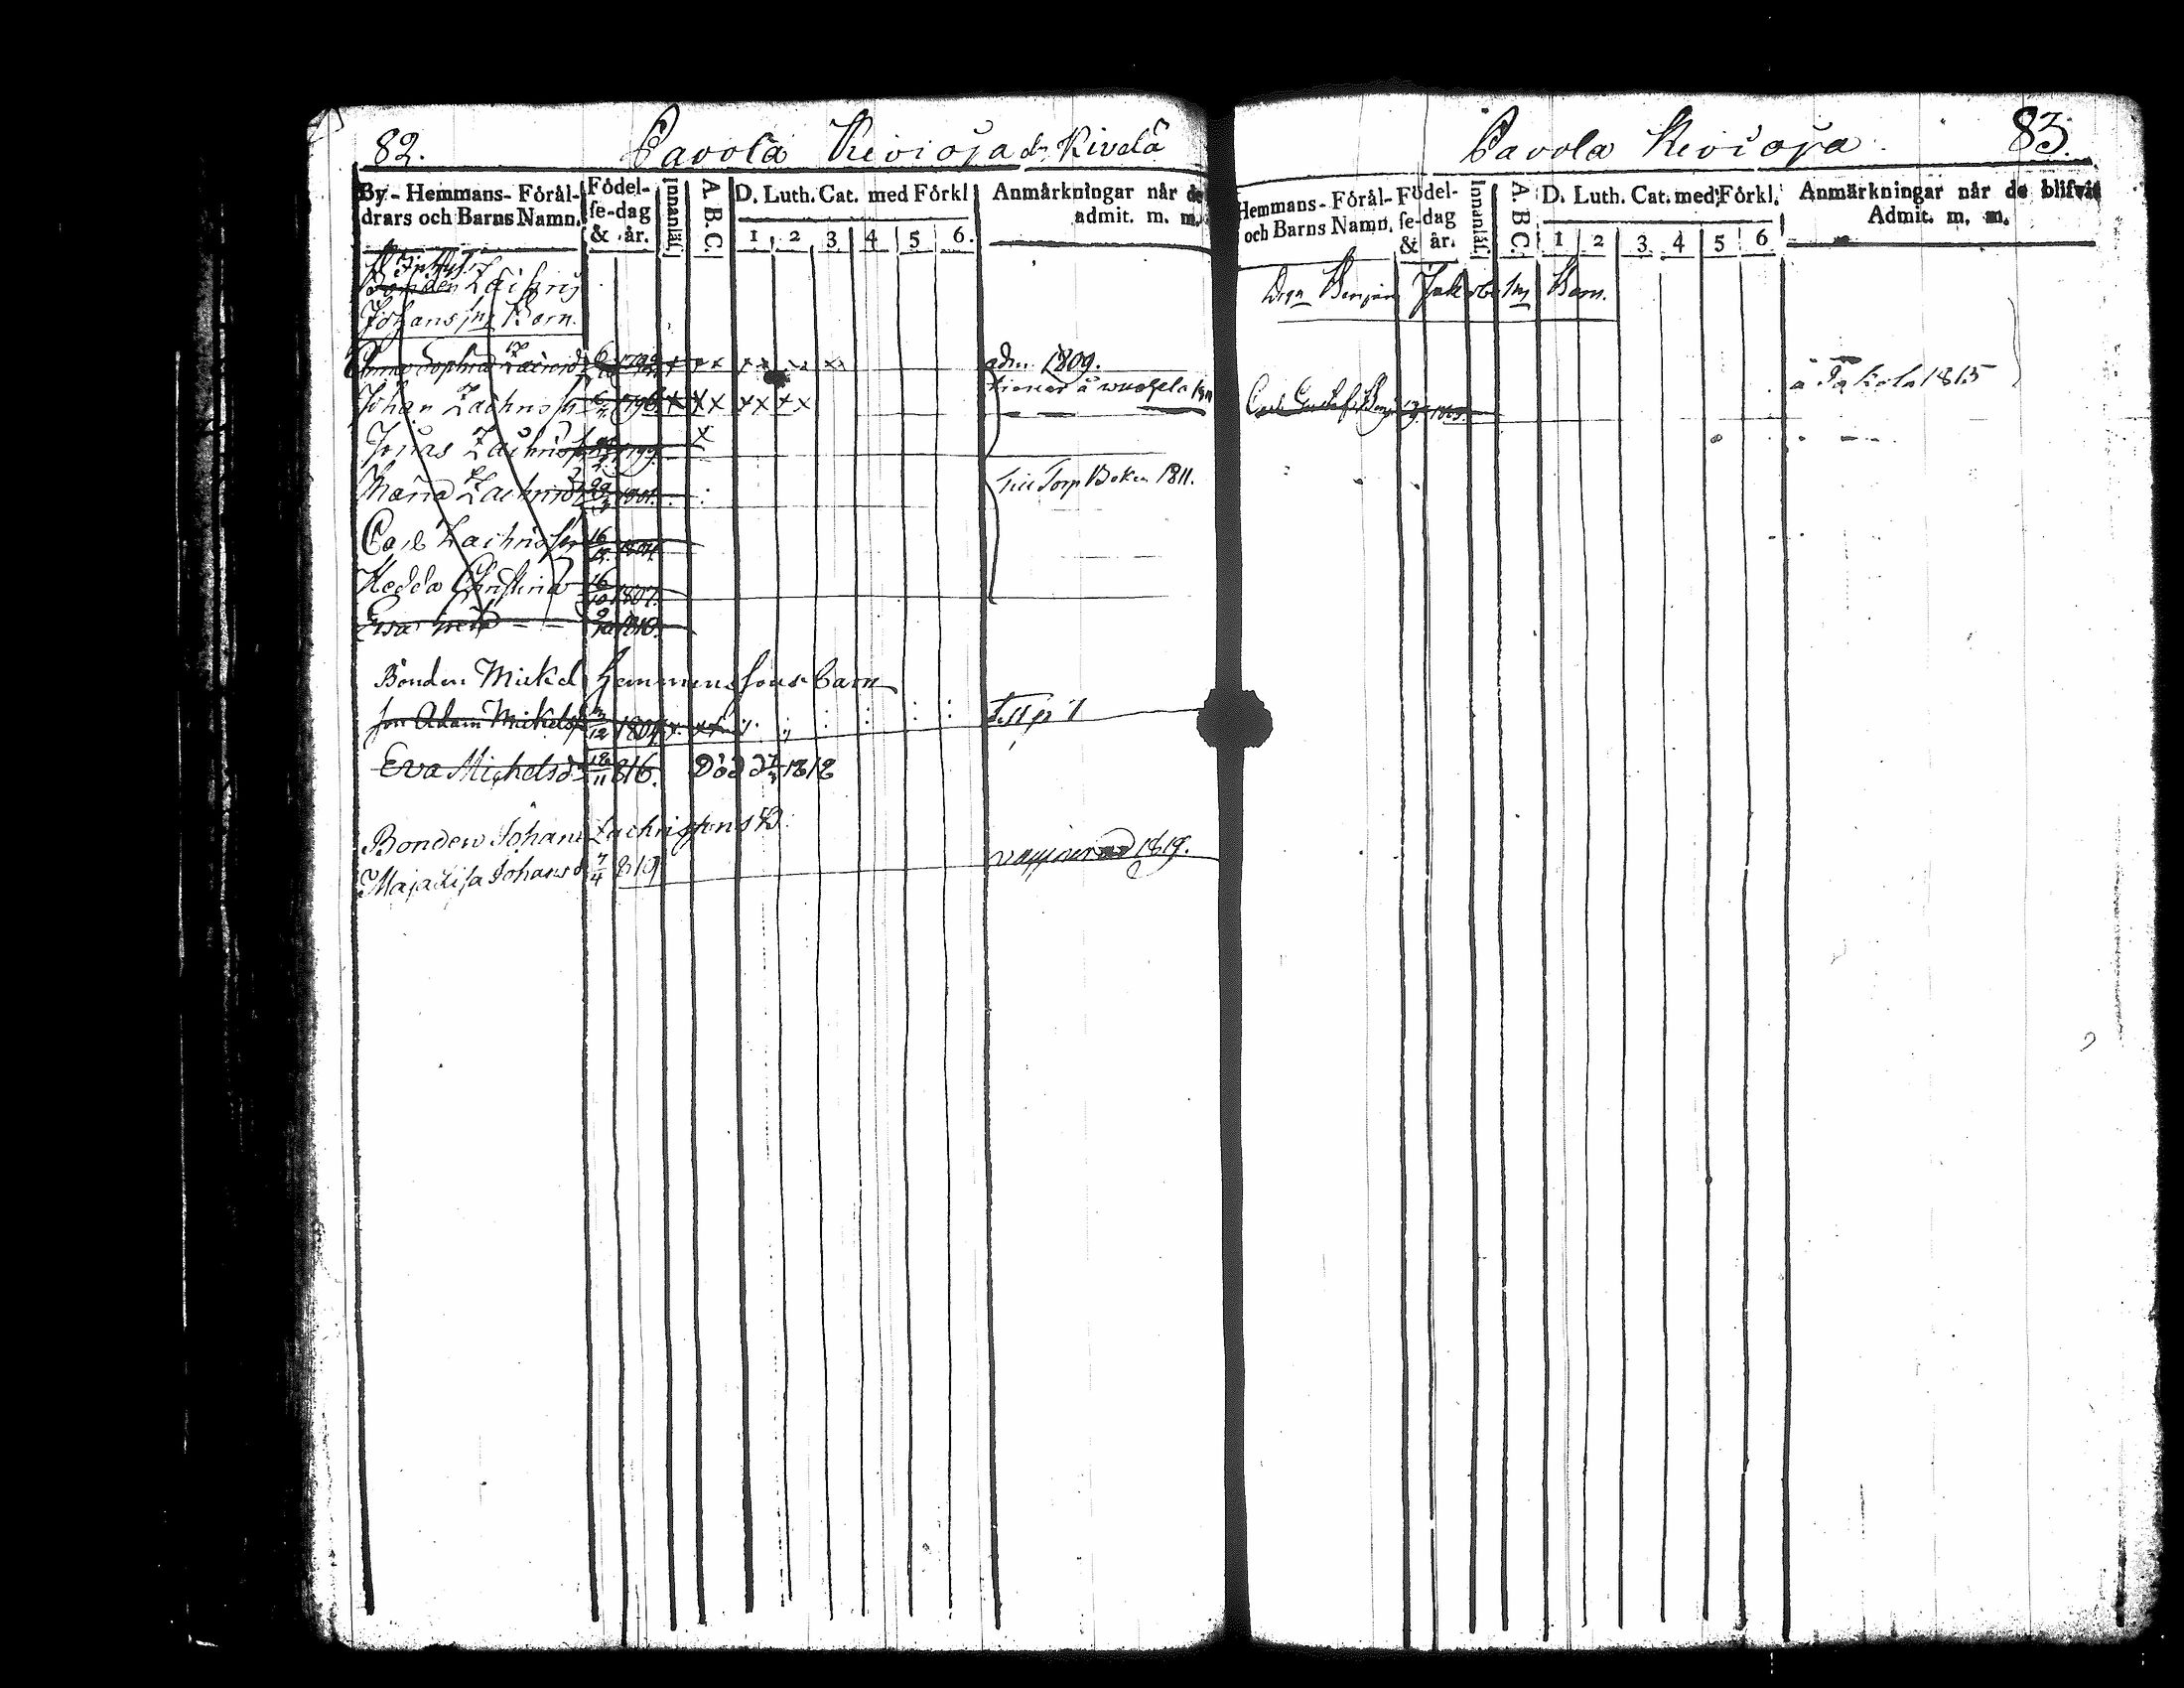 82. Pavola Kivioja & Kivelä
By - Hemmans- Förål-
drars och Barns Namn.
Födel-
se-dag
& år.
Innanläs.
A. B. C.
D. Luth. Cat. med Förkl
1 2 3 4 5 6.
Anmärkningar når de
admit. m. m.
Bonden Zachris
Johans sns Barn.
Anna Sophia 6 1792 x x x x x x x adm. 1809.
Johan Zachriss 1796 x x x x x x x tienar å 1811
Jonas Zachriss 1799 x
Maria Zachrisd 22/3 1801. Till Torp Boken 1811.
Carl Zachriss 16/12 1804
Hedda Christina 16/10 1807.
Eva 9/10 1810.
Bonden Mickel Hemmingssons barn
son Adam Mickelss 12 1804 x. x x
Eva Michelsd 12/11 816. Död d 1818
Bonden Johan Zachrissons B:
Maja Lisa Johansd 7/4 819 vaccinerad 1819.
Pavola Kivioja 83.
Hemmans- Förål-
och Barns Namn.
Födel-
se-dag
& år.
Innanläs.
A. B C.
D. Luth. Cat. med Förkl.
1 2 3 4 5 6
Anmärkningar når de blifvit
Admit. m. m.
Benjam Jakobs sns Barn.
Carl Gustaf Benj å Takola 1815